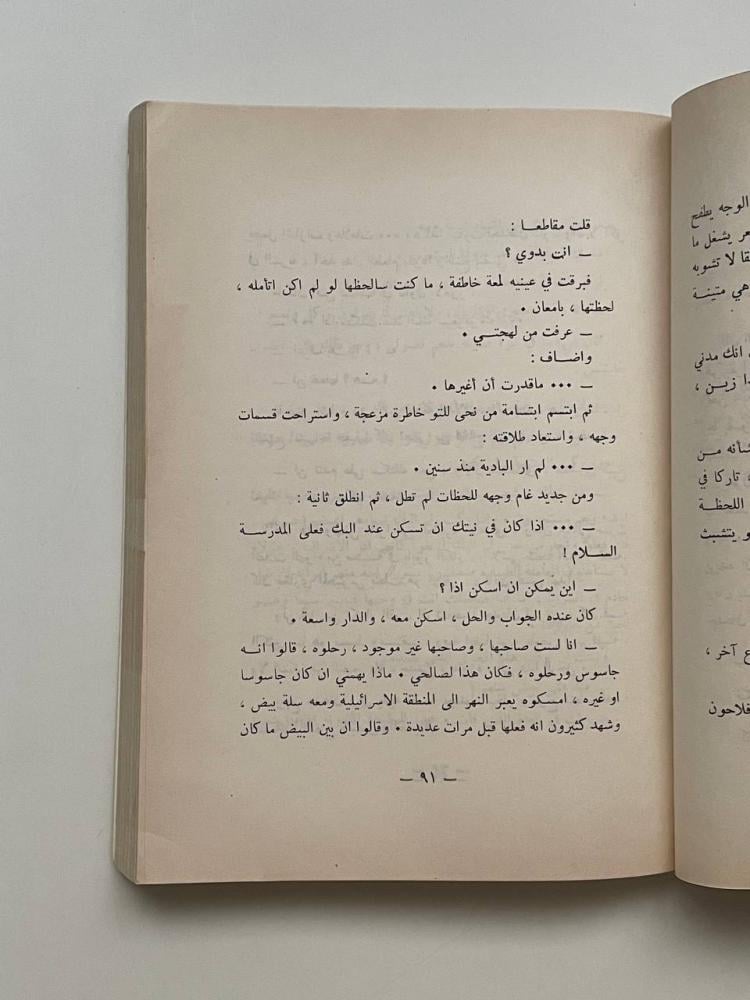 قلت مقاطعا :
— انت بدوي ؟
فبرقت في عينيه لمعة خاطفة ، ما كنت سالحظها لو لم اكن اتأمله ،
لحظتها ، بامعان .
— عرفت من لهجتي .
واضاف :
— ... ماقدرت أن أغيرها .
ثم ابتسم ابتسامة من نحى للتو خاطرة مزعجة ، واستراحت قسمات
وجهه ، واستعاد طلاقته :
— ... لم ار البادية منذ سنين .
ومن جديد غام وجهه للحظات لم تطل ، ثم انطلق ثانية :
— ... اذا كان في نيتك ان تسكن عند البك فعلى المدرسة
السلام !
— اين يمكن ان اسكن اذا ؟
كان عنده الجواب والحل ، اسكن معه ، والدار واسعة .
— انا لست صاحبها ، وصاحبها غير موجود ، رحلوه ، قالوا انه
جاسوس ورحلوه ، فكان هذا لصالحي . ماذا يهمني ان كان جاسوسا
او غيره ، امسكوه يعبر النهر الى المنطقة الاسرائيلية ومعه سلة بيض ،
وشهد كثيرون انه فعلها قبل مرات عديدة . وقالوا ان بين البيض ما كان
— ٩١ —
الوجه يطفح
يشغل ما
لا تشوبه
هي متينة
انك مدني
زين ،
شأنه من
، تاركا في
اللحظة
يتشبث
آخر ،
فلاحون